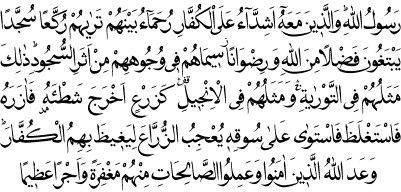 رَسُولُ اللهِ وَالَّذِينَ مَعَهُ أَشِدَّاءُ عَلَى الْكُفَّارِ رُحَمَاءُ بَيْنَهُمْ تَرٰىهُمْ رُكَّعًا سُجَّدًا
يَبْتَغُونَ فَضْلًا مِنَ اللهِ وَرِضْوَانًا سِيمَاهُمْ فِي وُجُوهِهِمْ مِنْ أَثَرِ السُّجُودِ ذٰلِكَ
مَثَلُهُمْ فِي التَّوْرٰيةِ وَمَثَلُهُمْ فِي الْإِنْجِيلِ كَزَرْعٍ أَخْرَجَ شَطْئَهُ فَآزَرَهُ
فَاسْتَغْلَظَ فَاسْتَوٰى عَلٰى سُوقِهِ يُعْجِبُ الزُّرَّاعَ لِيَغِيظَ بِهِمُ الْكُفَّارَ
وَعَدَ اللهُ الَّذِينَ اٰمَنُوا وَعَمِلُوا الصَّالِحَاتِ مِنْهُمْ مَغْفِرَةً وَأَجْرًا عَظِيمًا